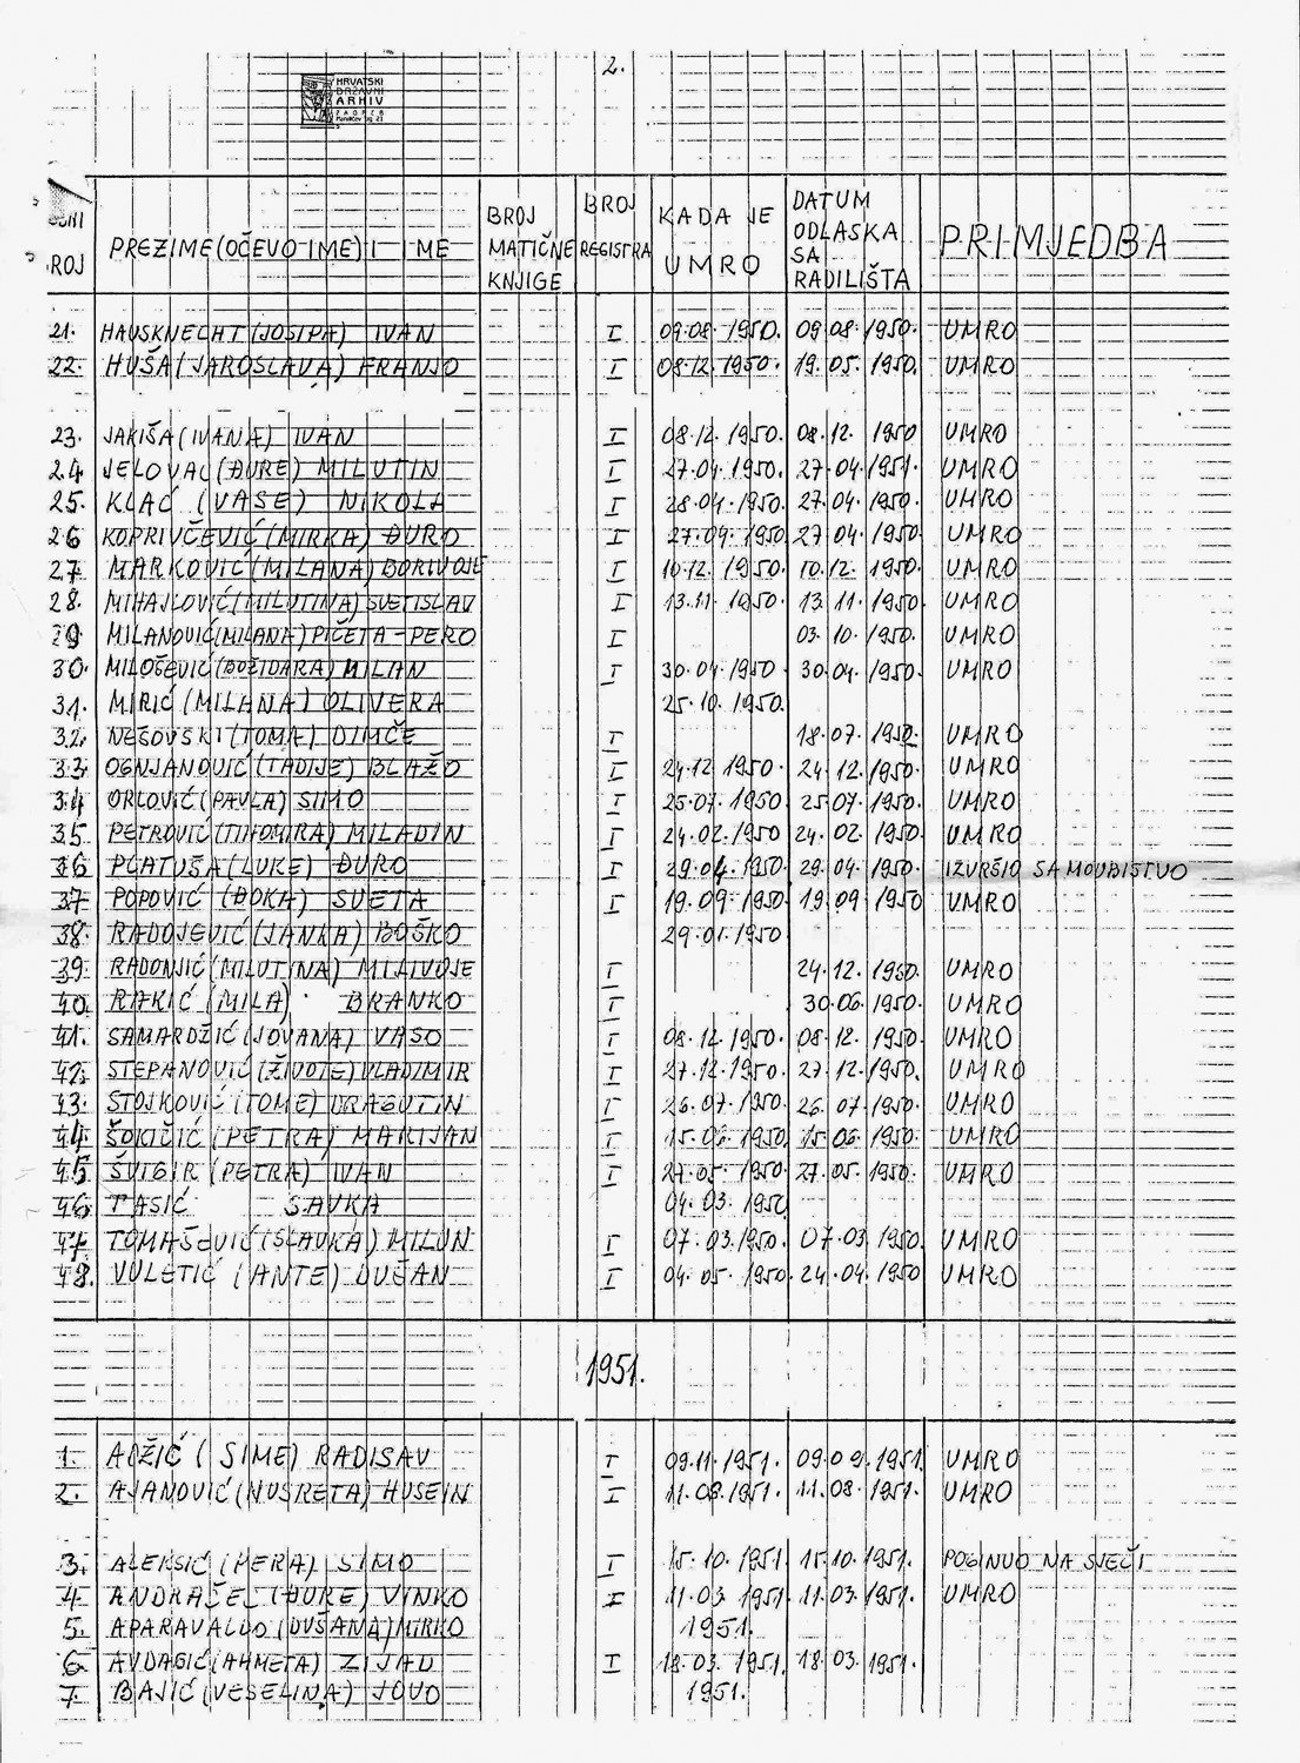 2.
HRVATSKI
DRŽAVNI
ARHIV
ZAGREB
ROJ PREZIME (OČEVO IME) I IME BROJ MATIČNE KNJIGE BROJ REGISTRA KADA JE UMRO DATUM ODLASKA SA RADILIŠTA PRIMJEDBA
21. HAUSKNECHT (JOSIPA) IVAN I 09.08.1950. 09.08.1950. UMRO
22. HUŠA (JAROSLAVA) FRANJO I 08.12.1950. 19.05.1950. UMRO
23. JAKIŠA (IVANA) IVAN I 08.12.1950. 08.12.1950 UMRO
24. JELOVAC (ĐURE) MILUTIN I 27.04.1950. 27.04.1951. UMRO
25. KLAĆ (VASE) NIKOLA I 28.04.1950. 27.04.1950. UMRO
26 KOPRIVČEVIĆ (MIRKA) ĐURO I 27.04.1950 27.04.1950. UMRO
27. MARKOVIĆ (MILANA) BORIVOJE I 10.12.1950. 10.12.1950. UMRO
28. MIHAJLOVIĆ (MILUTINA) SVETISLAV I 13.11.1950. 13.11.1950. UMRO
29. MILANOVIĆ (MILANA) PIČETA-PERO I 03.10.1950. UMRO
30. MILOŠEVIĆ (BOŽIDARA) MILAN I 30.04.1950 30.04.1950. UMRO
31. MIRIĆ (MILANA) OLIVERA 25.10.1950.
32. NEŠOVSKI (TOMA) DIMČE I 18.07.1950. UMRO
33. OGNJANOVIĆ (TADIJE) BLAŽO I 24.12.1950. 24.12.1950. UMRO
34 ORLOVIĆ (PAVLA) SIMO I 25.07.1950 25.07.1950. UMRO
35. PETROVIĆ (TIHOMIRA) MILADIN I 24.02.1950 24.02.1950. UMRO
36 PLATUŠA (LUKE) ĐURO I 29.04.1950. 29.04.1950. IZVRŠIO SAMOUBISTVO
37 POPOVIĆ (ĐOKA) SVETA I 19.09.1950 19.09.1950 UMRO
38. RADOJEVIĆ (JANKA) BOŠKO 29.01.1950
39. RADONJIĆ (MILUTINA) MILIVOJE I 24.12.1950. UMRO
40. RAKIĆ (MILA) BRANKO I 30.06.1950. UMRO
41. SAMARDŽIĆ (JOVANA) VASO I 08.12.1950. 08.12.1950. UMRO
42. STEPANOVIĆ (ŽIVOTE) VLADIMIR I 27.12.1950. 27.12.1950. UMRO
43. STOJKOVIĆ (TOME) DRAGUTIN I 26.07.1950. 26.07.1950. UMRO
44. ŠOKIČIĆ (PETRA) MARIJAN I 15.06.1950. 15.06.1950. UMRO
45. ŠVIGIR (PETRA) IVAN I 27.05.1950. 27.05.1950. UMRO
46. TASIĆ SAVKA 04.03.1950
47. TOMAŠEVIĆ (SLAVKA) MILUN I 07.03.1950. 07.03.1950. UMRO
48. VULETIĆ (ANTE) DUŠAN I 04.05.1950. 24.04.1950 UMRO
1951.
1. ADŽIĆ (SIME) RADISAV I 09.11.1951. 09.09.1951. UMRO
2. AJANOVIĆ (NUSRETA) HUSEIN I 11.08.1951. 11.08.1951. UMRO
3. ALEKSIĆ (PERA) SIMO I 15.10.1951. 15.10.1951. POGINUO NA SJEČI
4. ANDRAČEC (ĐURE) VINKO I 11.03.1951. 11.03.1951. UMRO
5. APARAVALDO (DUŠANA) MIRKO 1951.
6. AVDAGIĆ (AHMETA) ZIJAD I 18.03.1951. 18.03.1951.
7. BAJIĆ (VESELINA) JOVO 1951.